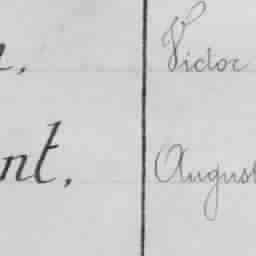 n, Victor
nt, August